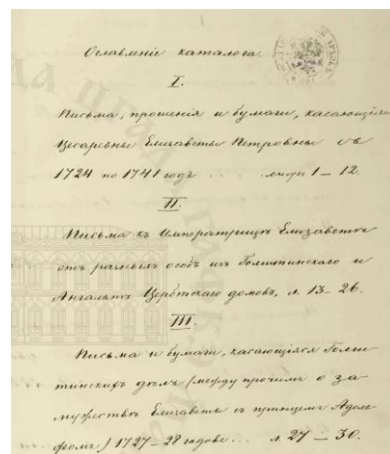 Оглавленіе каталога.
I.
Письма, прошенія и бумаги, касающіяся
Цесаревны Елизаветы Петровны съ
1724 по 1741 годъ . . . . листы 1 — 12.
II.
Письма къ Императрицѣ Елизаветѣ
отъ разныхъ особъ изъ Голштинскаго и
Ангальтъ Цербтскаго домовъ, л. 13 – 26.
III.
Письма и бумаги, касающіяся Голш
тинскихъ дѣлъ (между прочимъ о за
мужествѣ Елизаветы съ принцемъ Адоль
фомъ) 1727 – 28 годовъ . . . л. 27 — 30.